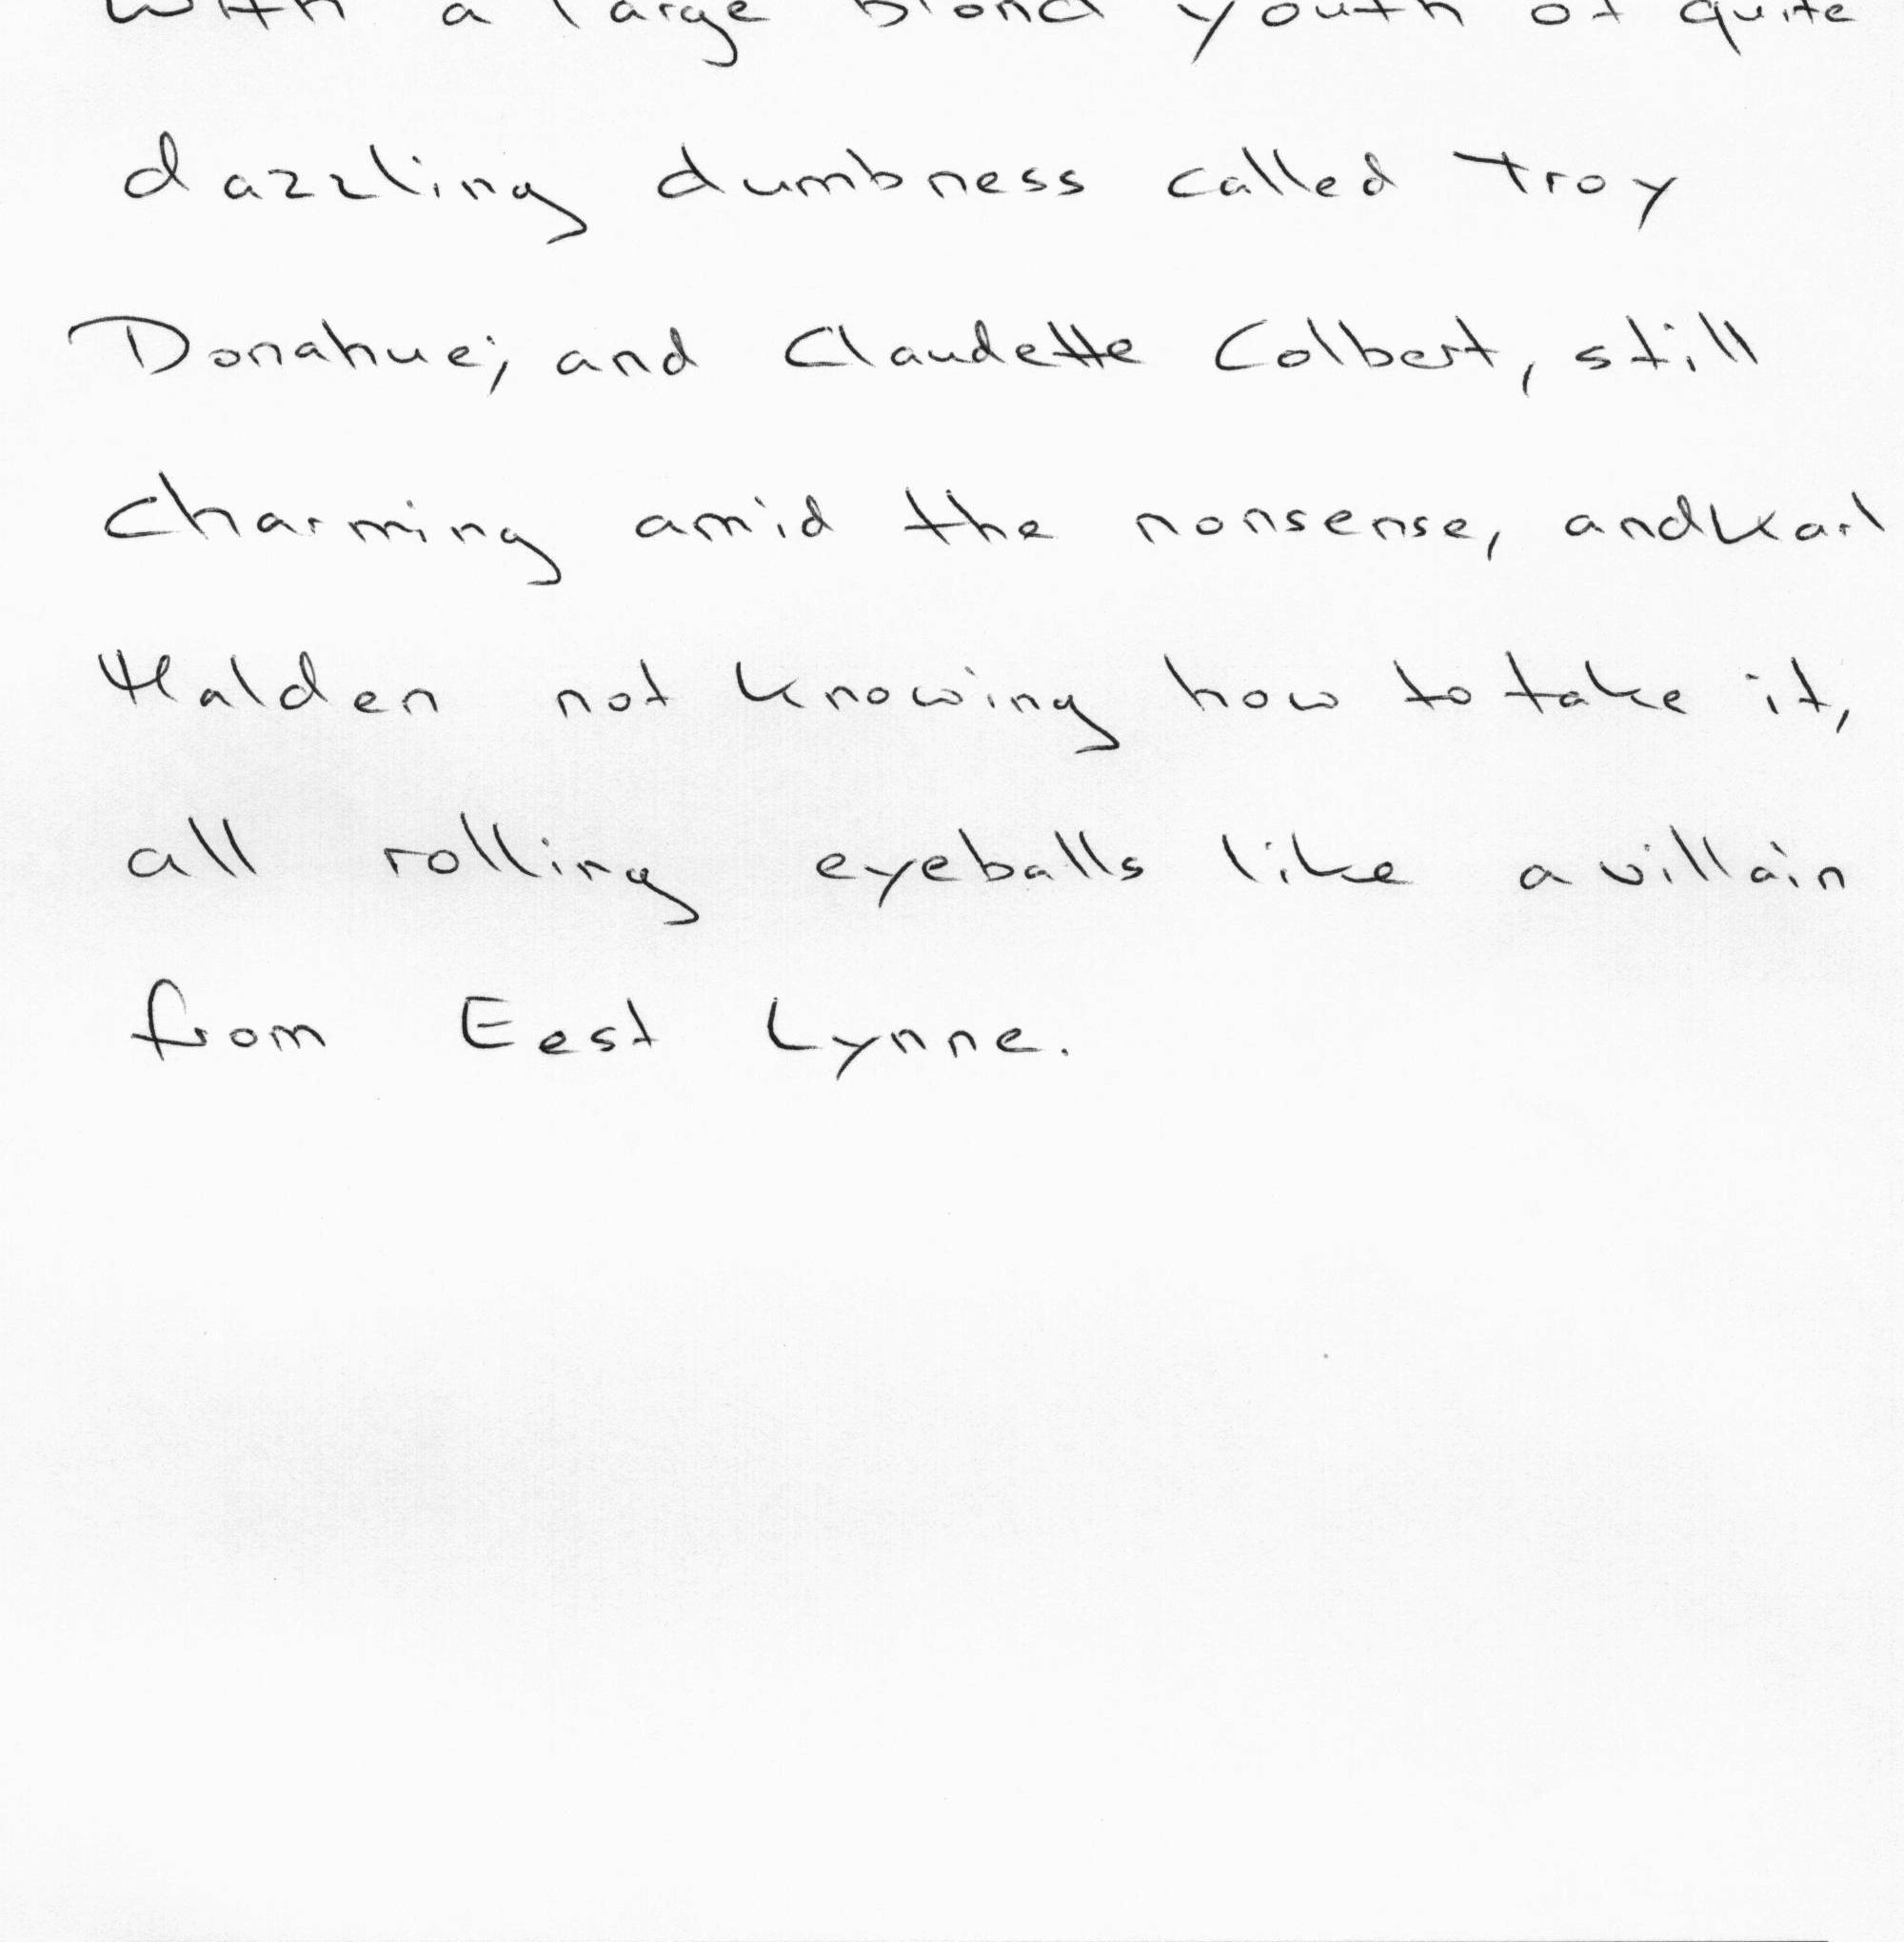 with a large blond youth of quite
dazzling dumbness called Troy
Donahue; and Claudette Colbert, still
charming amid the nonsense, and Karl
Malden not knowing how to take it,
all rolling eyeballs like a villain
from Eest Lynne.